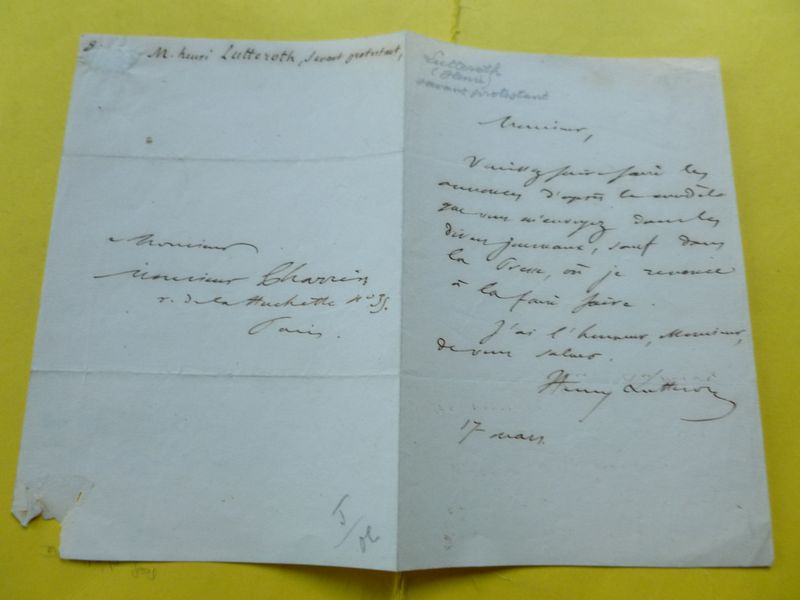 M. henri Lutteroth, savant protestant,
Monsieur
Monsieur Charrin
r. de la Huchette N° 35.
Paris.
Lutteroth
(Henri)
savant protestant
Monsieur,
Veuillez faire les
annonces d'après le modèle
que vous m'envoyez dans les
divers journaux, sauf dans
la Presse, où je renonce
à la faire faire.
J'ai l'honneur, Monsieur,
de vous saluer.
Henry Lutteroth
17 mars